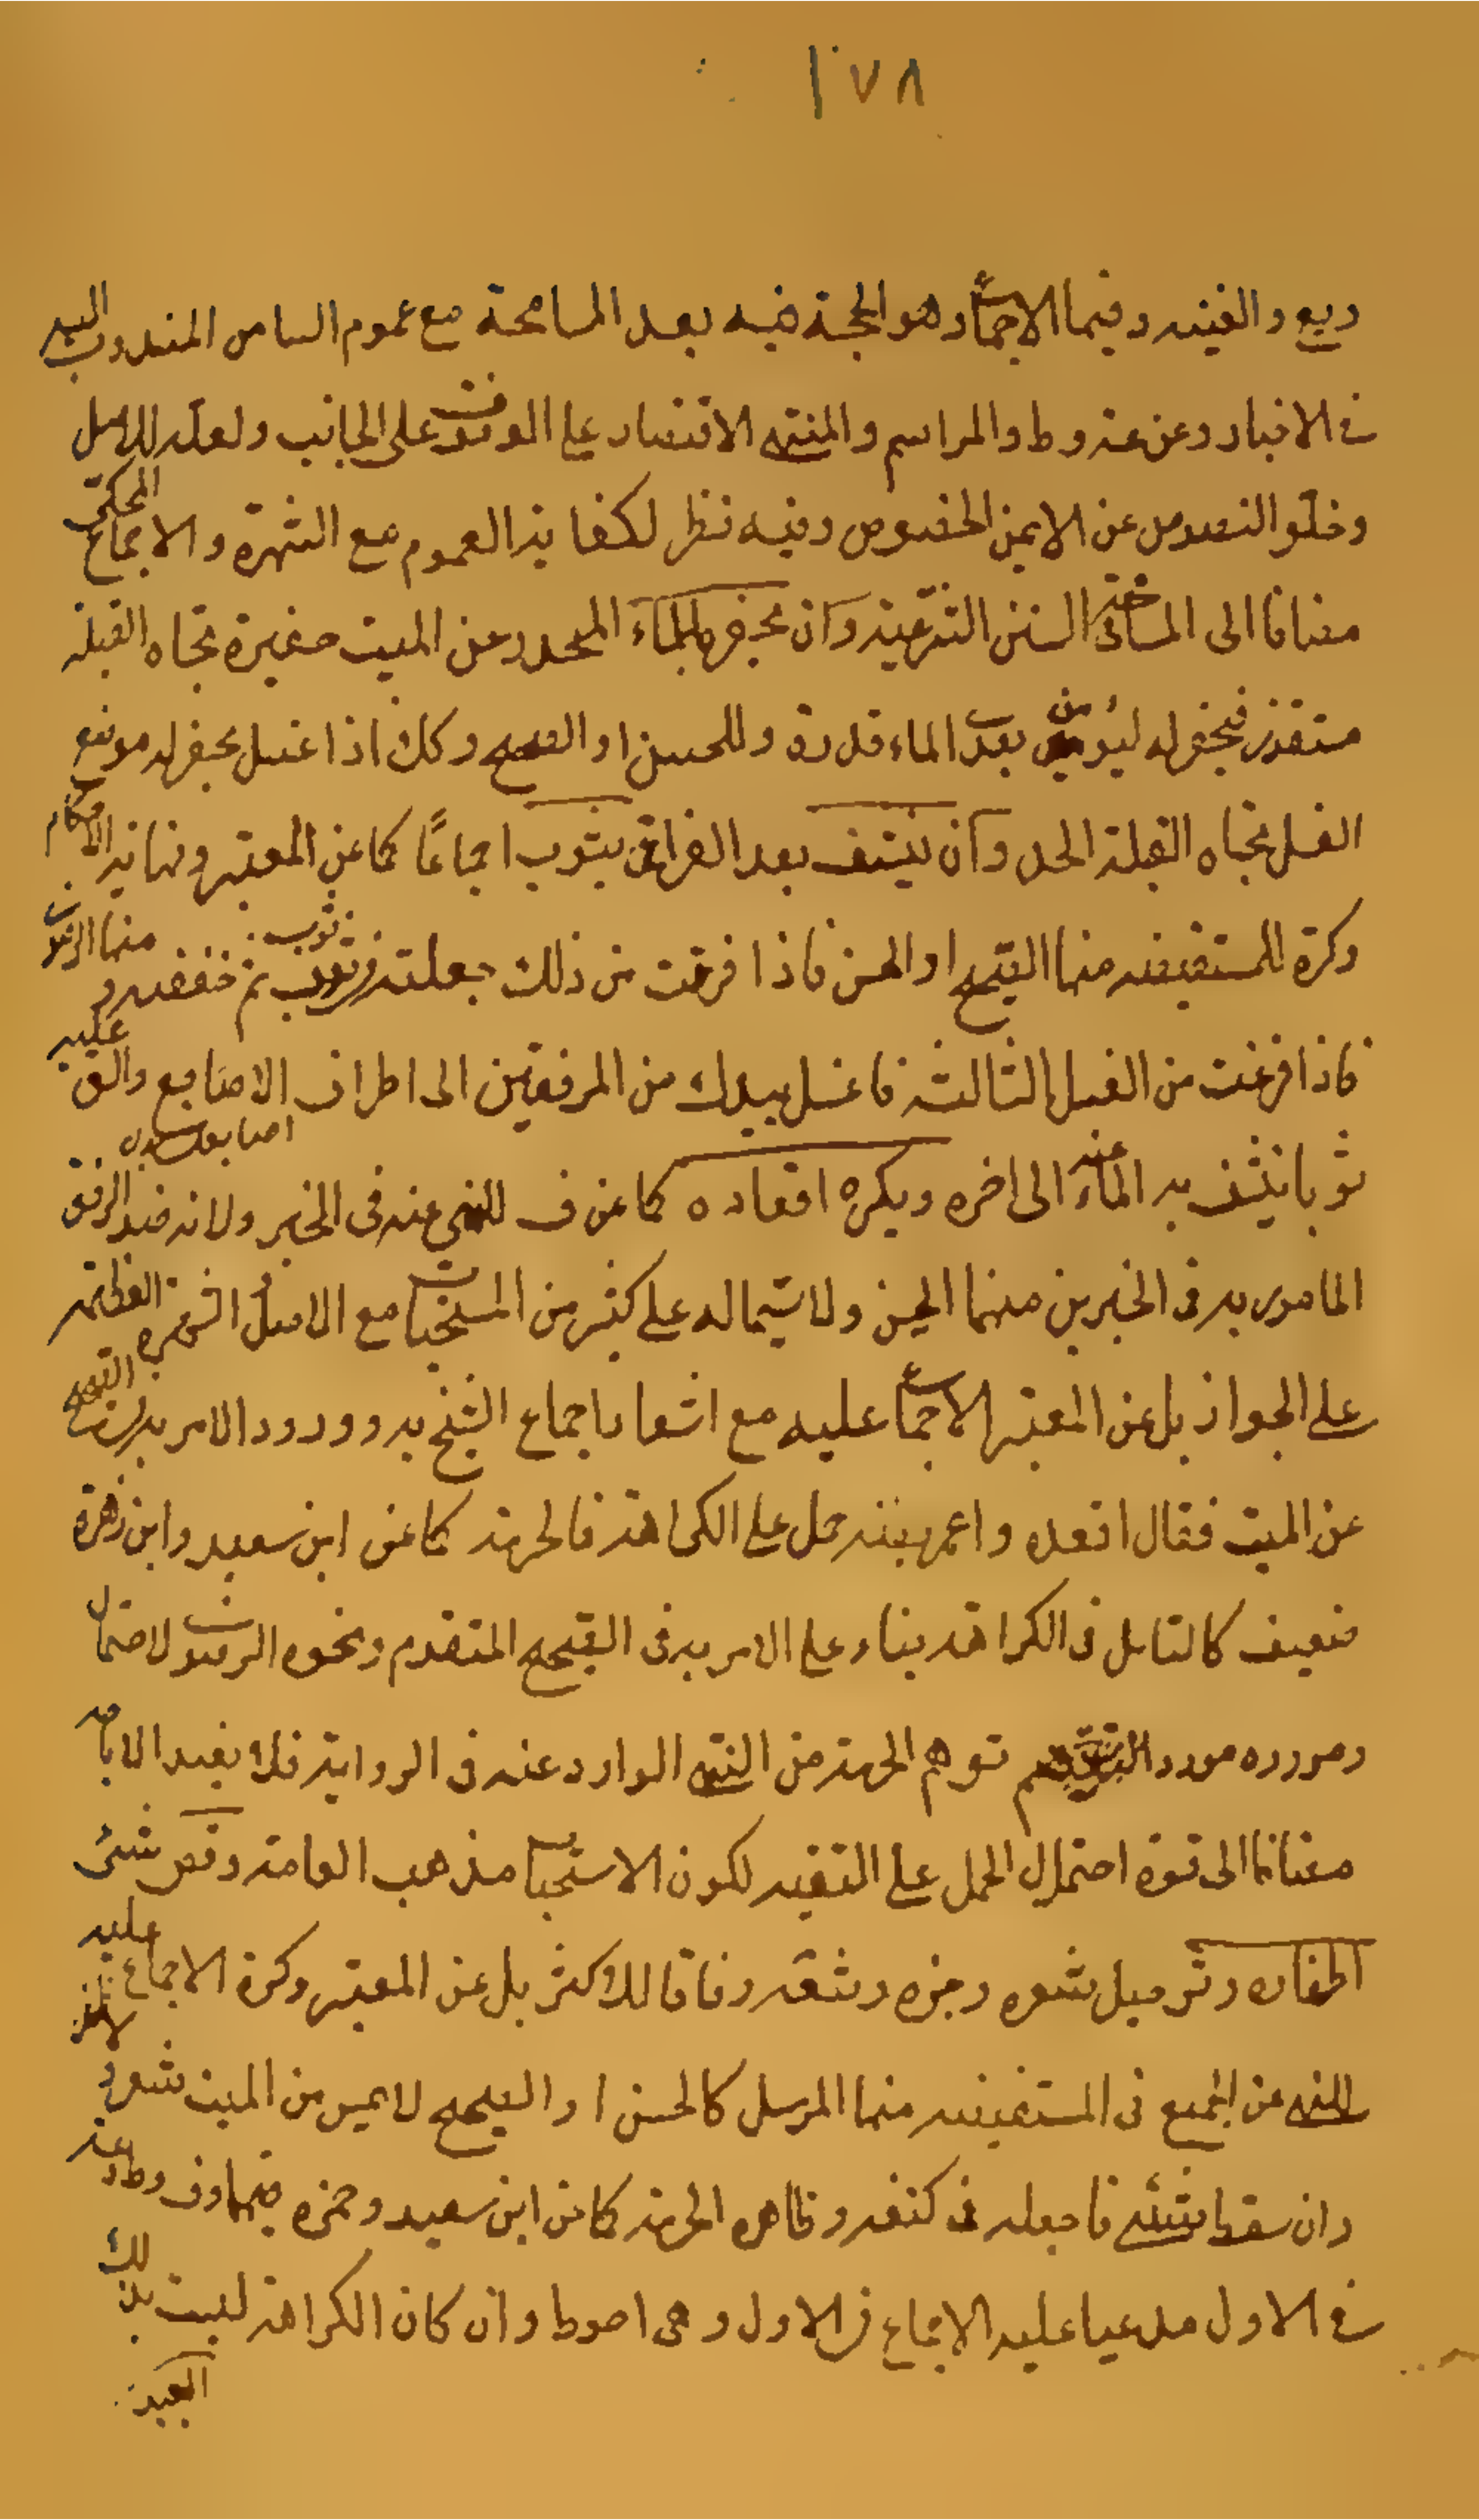 ١٧٨
ديع والغنيه وفيهما الاجماع وهو الحجة فيه بعد المسامحة مع عموم التيامن المندوب اليه
في الاخبار وعن عنه وط والمراسم والمنتهى الاقتصار على الوقوف على الجانب ولعله للاصل
وخلو النصوص عن الايمن الخصوص وفيه نظر لكفاية العموم مع الشهرة والاجماع المحكي
مضافا الى المسامحة في السنن الشرعية وان يحفر للماء المحدر عن الميت حفيرة تجاه القبلة
مستقذر فيحفر له ليؤمن بعد الماء قذره وللحسن او الصحيح وكك اذا غسل يحفر له موضع
الغسل تجاه القبلة الحد وان ينشف بعد الفراغ بثوب اجماعا كما عن المعتبر ونهاية الاحكام
وكرة للمستفيضه منها الصحيح او الحسن فاذا فرغت من ذلك جعلته في ثوب ثم جففته ومنها الرضوي
فاذا فرغت من الغسل الثالثه فاغسل يديك من المرفقين الى اطراف الاصابع اصابع يديك والق عليه
ثوبا ينشف به الماء عنه الى اخره ويكره اقعاده كما عن ف للنهي عنه في الخبر ولانه ضد الرفق
المامور به في الخبرين منهما الحسن ولاشتماله على كثير من المستحبات مع الاصل الشهرة العظيمة
على الجواز بل عن المعتبر الاجماع عليه مع اشعار اجماع الشيخ به وورود الامر به في الصحيح
عن الميت فقال اقعده واغمز بطنه حمل على الكراهة فالحرمة كما عن ابن سعيد وابن زهرة
ضعيف كالتامل في الكراهة بناء على الامر به في الصحيح المتقدم ونحوه الرضوي لاحتمال
وروده مورد توهم الحرمة من النهي الوارد عنه في الرواية فلا يفيد الا الاباحه
مضافا الى قوة احتمال الحمل على التقيه لكون الاستحباب مذهب العامة وقص شئ
اظفاره وترجيل شعره وجزه ونتفه وفاقا للاكثر بل عن المعتبر وكرة الاجماع عليه
للنهي عن الجميع في المستفيضه منها المرسل كالحسن او الصحيح لا يمس من الميت شعر ولا ظفر
وان سقط منه شئ فاجعله في كفنه وظاهره الحرمة كما عن ابن سعيد وحمزه فيهما وف وط وعنه
في الاول مدعيا عليه الاجماع في الاول وهي احوط وان كان الكراهة ليست بذلك
البعيد